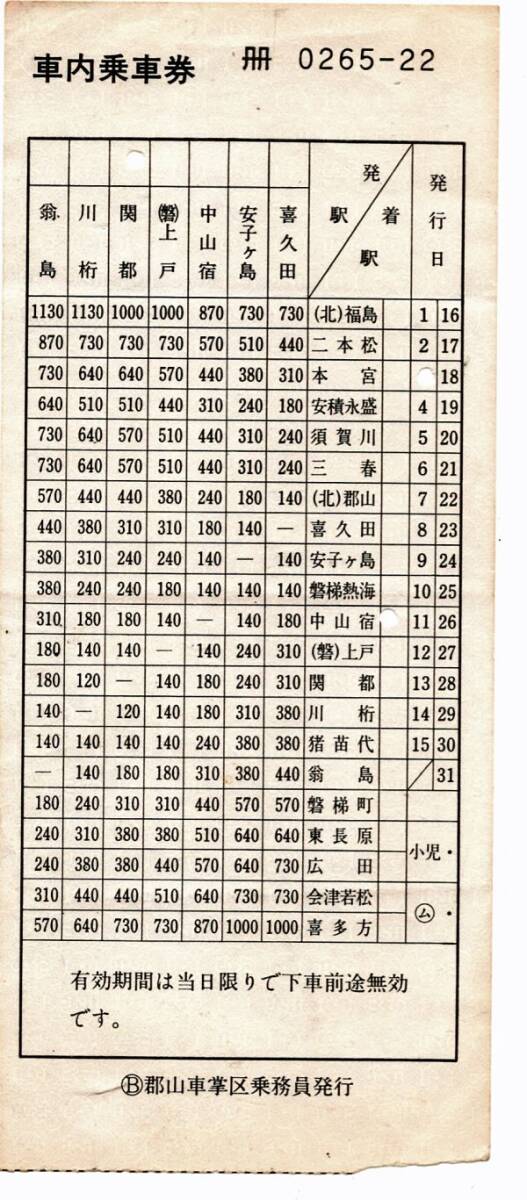 車内乗車券 冊 0265-22
翁島 川桁 関都 (磐)上戸 中山宿 安子ヶ島 喜久田 発駅 着駅 発行日
1130 1130 1000 1000 870 730 730 (北)福島 1 16
870 730 730 730 570 510 440 二本松 2 17
730 640 640 570 440 380 310 本宮 18
640 510 510 440 310 240 180 安積永盛 4 19
730 640 570 510 440 310 240 須賀川 5 20
730 640 570 510 440 310 240 三春 6 21
570 440 440 380 240 180 140 (北)郡山 7 22
440 380 310 310 180 140 — 喜久田 8 23
380 310 240 240 140 — 140 安子ヶ島 9 24
380 240 240 180 140 140 140 磐梯熱海 10 25
310 180 180 140 — 140 180 中山宿 11 26
180 140 140 — 140 240 310 (磐)上戸 12 27
180 120 — 140 180 240 310 関都 13 28
140 — 120 140 180 310 380 川桁 14 29
140 140 140 140 240 380 380 猪苗代 15 30
— 140 180 180 310 380 440 翁島 31
180 240 310 310 440 570 570 磐梯町
240 310 380 380 510 640 640 東長原 小児・
240 380 380 440 570 640 730 広田
310 440 440 510 640 730 730 会津若松 ㋰・
570 640 730 730 870 1000 1000 喜多方
有効期間は当日限りで下車前途無効
です。
Ⓑ郡山車掌区乗務員発行